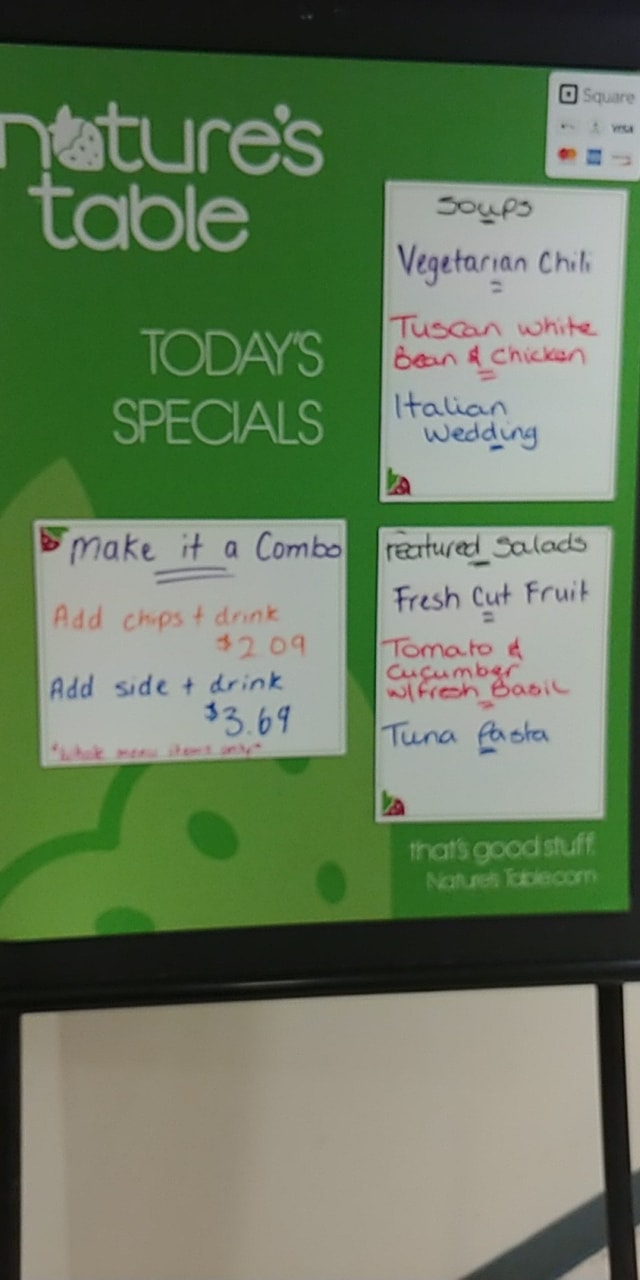 nature's
table
TODAY'S
SPECIALS
Square
VISA
Soups
Vegetarian Chili
Tuscan white
Bean & Chicken
Italian
Wedding
Make it a Combo
Add chips + drink
$2 09
Add side + drink
$3.69
*Whole menu items only*
Featured Salads
Fresh Cut Fruit
Tomato &
Cucumber
w/Fresh Basil
Tuna Pasta
that's good stuff.
Nature's Table.com